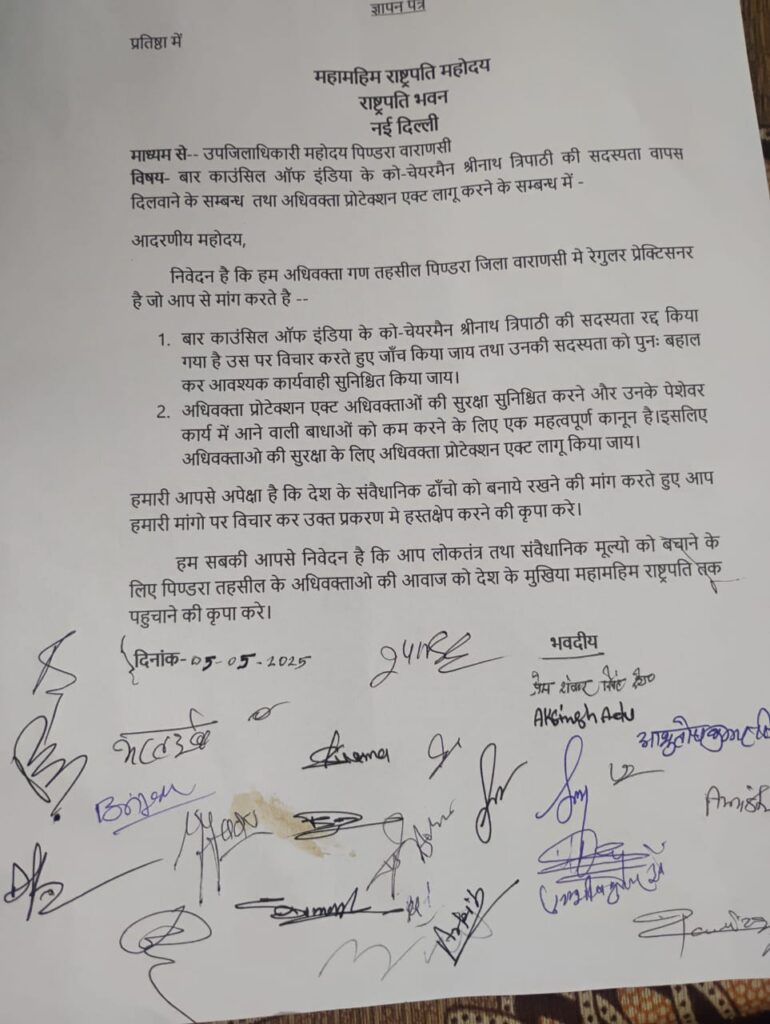 ज्ञापन पत्र
प्रतिष्ठा में
महामहिम राष्ट्रपति महोदय
राष्ट्रपति भवन
नई दिल्ली
माध्यम से-- उपजिलाधिकारी महोदय पिण्डरा वाराणसी
विषय- बार काउंसिल ऑफ इंडिया के को-चेयरमैन श्रीनाथ त्रिपाठी की सदस्यता वापस
दिलवाने के सम्बन्ध तथा अधिवक्ता प्रोटेक्शन एक्ट लागू करने के सम्बन्ध में -
आदरणीय महोदय,
निवेदन है कि हम अधिवक्ता गण तहसील पिण्डरा जिला वाराणसी मे रेगुलर प्रेक्टिसनर
है जो आप से मांग करते है --
1. बार काउंसिल ऑफ इंडिया के को-चेयरमैन श्रीनाथ त्रिपाठी की सदस्यता रद्द किया
गया है उस पर विचार करते हुए जाँच किया जाय तथा उनकी सदस्यता को पुनः बहाल
कर आवश्यक कार्यवाही सुनिश्चित किया जाय।
2. अधिवक्ता प्रोटेक्शन एक्ट अधिवक्ताओं की सुरक्षा सुनिश्चित करने और उनके पेशेवर
कार्य में आने वाली बाधाओं को कम करने के लिए एक महत्वपूर्ण कानून है।इसलिए
अधिवक्ताओ की सुरक्षा के लिए अधिवक्ता प्रोटेक्शन एक्ट लागू किया जाय।
हमारी आपसे अपेक्षा है कि देश के संवैधानिक ढाँचो को बनाये रखने की मांग करते हुए आप
हमारी मांगो पर विचार कर उक्त प्रकरण मे हस्तक्षेप करने की कृपा करे।
हम सबकी आपसे निवेदन है कि आप लोकतंत्र तथा संवैधानिक मूल्यो को बचाने के
लिए पिण्डरा तहसील के अधिवक्ताओ की आवाज को देश के मुखिया महामहिम राष्ट्रपति तक
पहुचाने की कृपा करे।
दिनांक-05-05-2025
भवदीय
AKSingh Adv